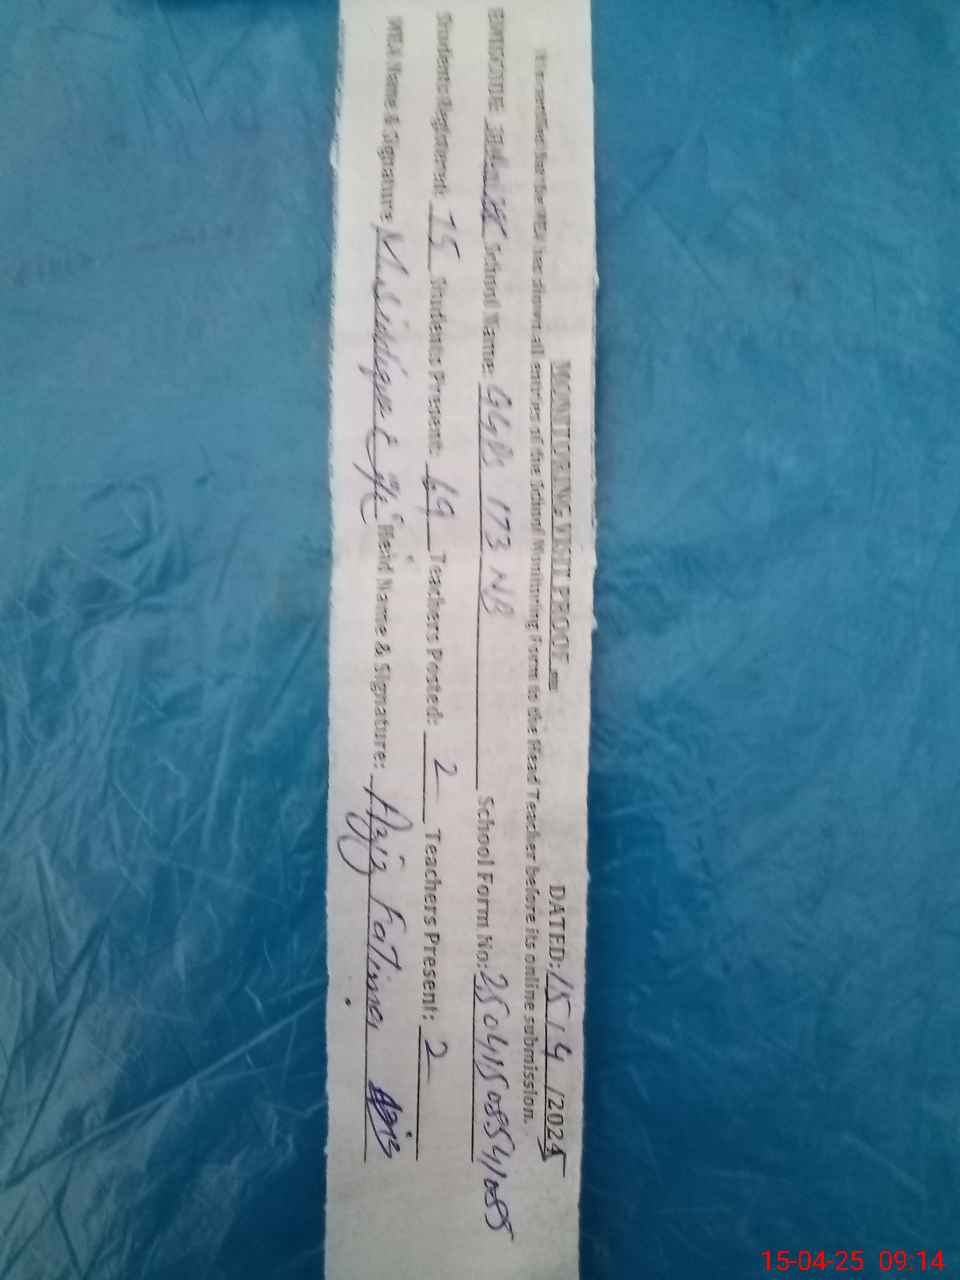 MONITORING VISIT PROOF DATED: 15/4/2025
It is certified that the MEA has shown all entries of the School Monitoring Form to the Head Teacher before its online submission.
EMISCODE: School Name: GGPS 173 NB School Form No: 25041508541085
Students Registered: 75 Students Present: 69 Teachers Posted: 2 Teachers Present: 2
MEA Name & Signature Head Name & Signature: Aziz Fatima
15-04-25 09:14